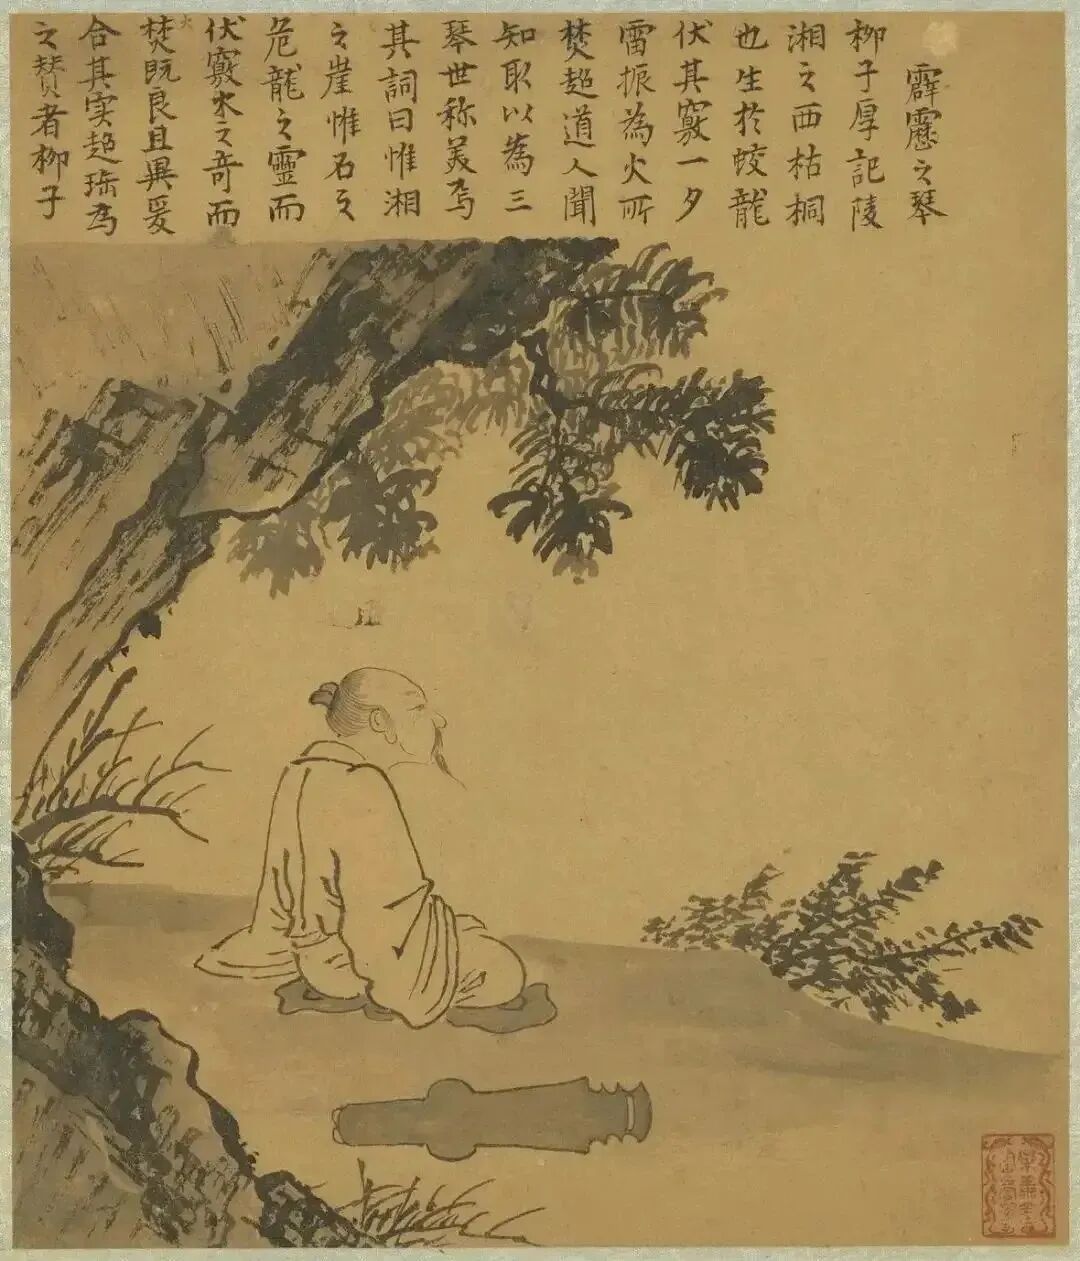 霹靂之琴
柳子厚記陵
湘之西枯桐
也生於蛟龍
伏其竅一夕
雷振為火所
焚超道人聞
知取以為三
琴世称美焉
其詞曰惟湘
之崖惟石之
危龍之靈而
伏竅水之奇而
焚既良且異爰
火
合其实超珎為
之賛者柳子